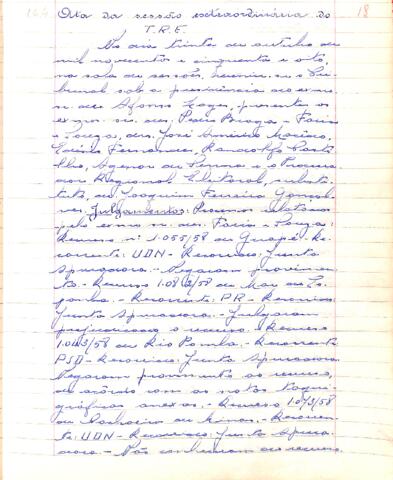 164 Ata da sessão extraordinária do 18
T.R.E.
No dia trinta de outubro de
mil novecentos e cinquenta e oito,
na sala de sessões, reuniu-se o Tri-
bunal sob a presidência do exmo
sr. des. Afonso Lages, presentes os
exmos. srs. des. Pedro Braga - Faria
e Souza, drs. José Américo Macedo,
Fernandes,
lho, Agenor de Senna e o Procura-
dor Regional Eleitoral, substi-
tuto, dr. Joaquim Ferreira Gonçal-
ves. Julgamentos: Processos relatados
pelo exmo sr. des. Faria e Souza:
Recurso nº 1.055/58 de Guapé - Re-
corrente: UDN - Recorrida: Junta
Apuradora. - Negaram provimen-
to. - Recurso de Mar de Es-
panha. - Recorrente: PR - Recorrida:
Junta Apuradora. - Julgaram
prejudicado o recurso. - Recurso
1.043/58 de Rio Pomba. - Recorrente:
PSD - Recorrida: Junta Apuradora.
Negaram provimento ao recurso,
de acôrdo com as notas taqui-
gráficas anexas. - Recurso 1073/58
de de Minas. - Recorren-
te: UDN - Recorrida: Junta Apura-
dora - Não conheceram do recurso